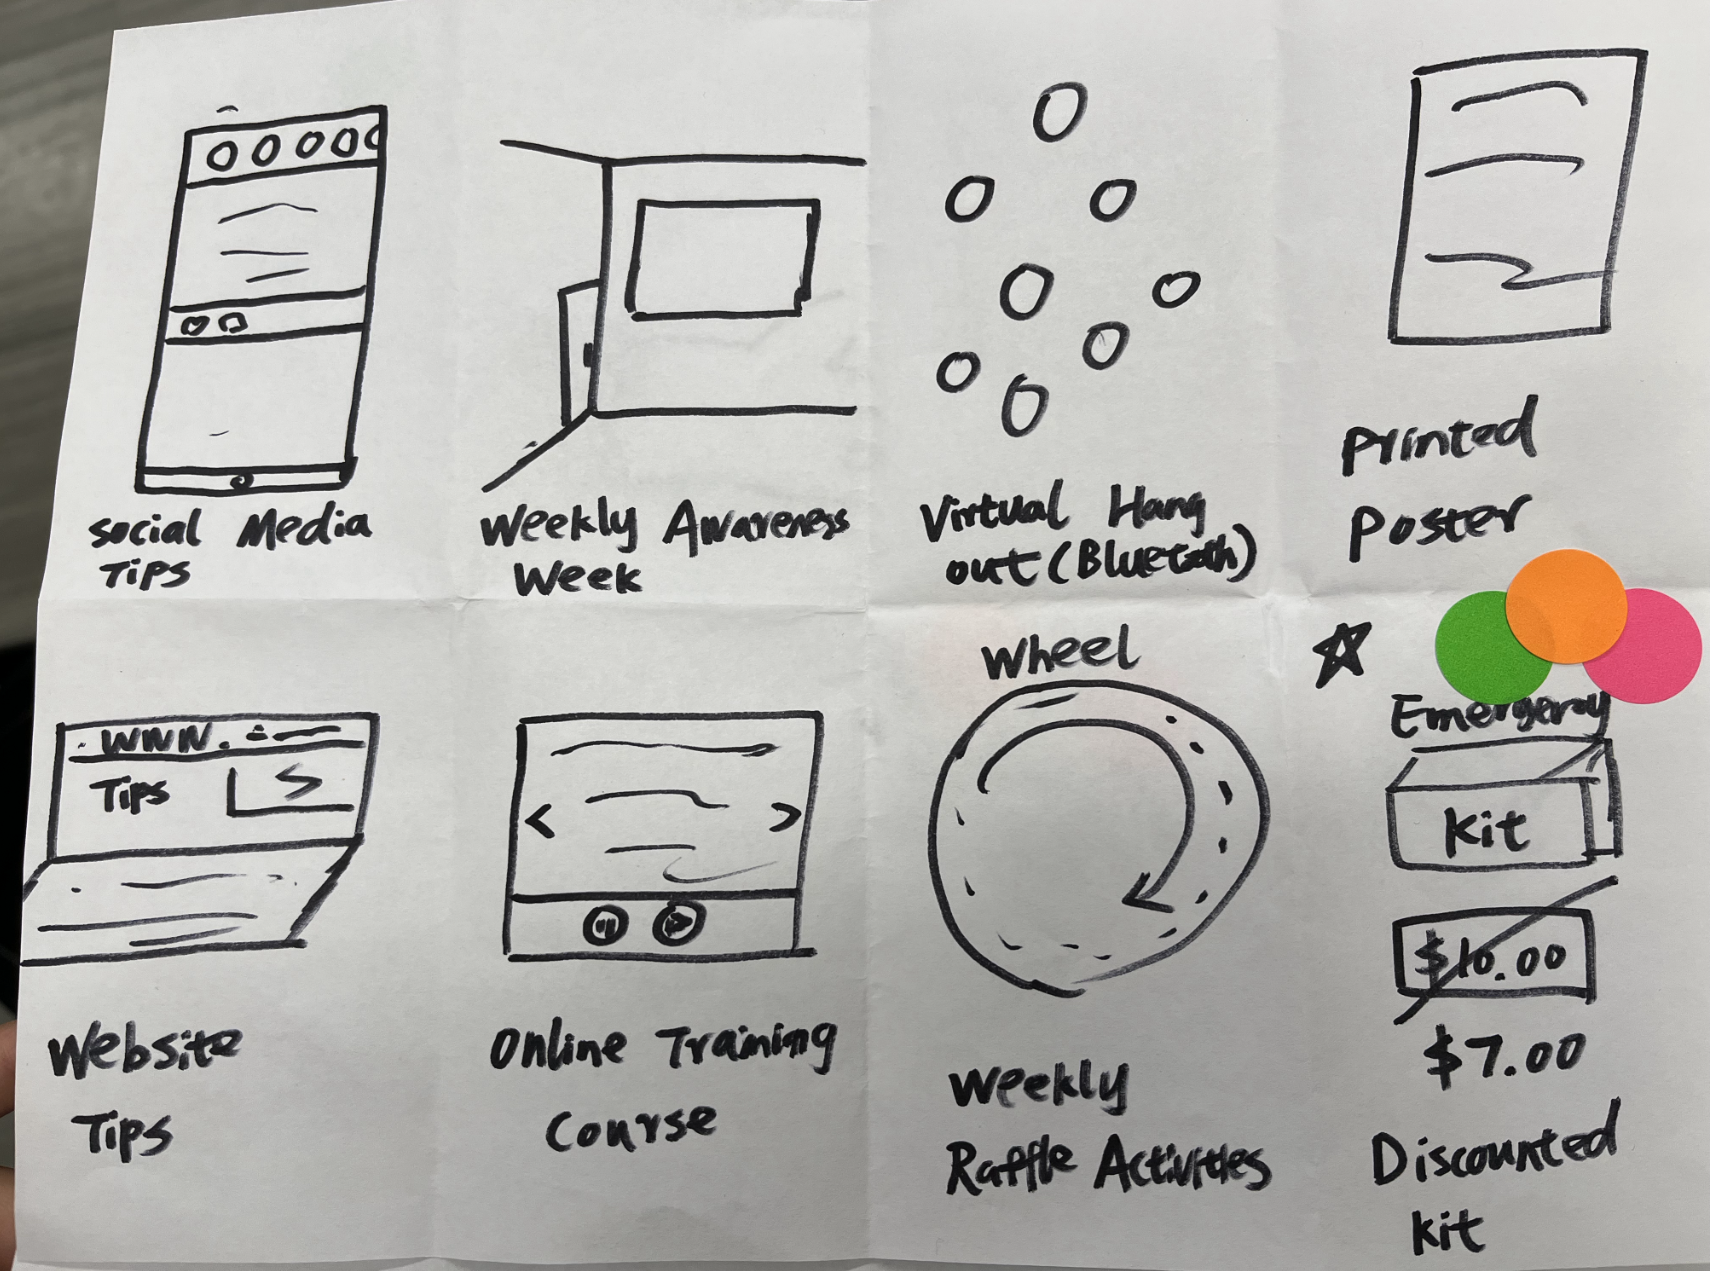 Social Media
Tips
Weekly Awareness
Week
Virtual Hang
out (Bluetooth)
Printed
Poster
www.
Tips
Website
Tips
Online Training
Course
Wheel
Weekly
Raffle Activities
Emergency
Kit
$10.00
$7.00
Discounted
Kit